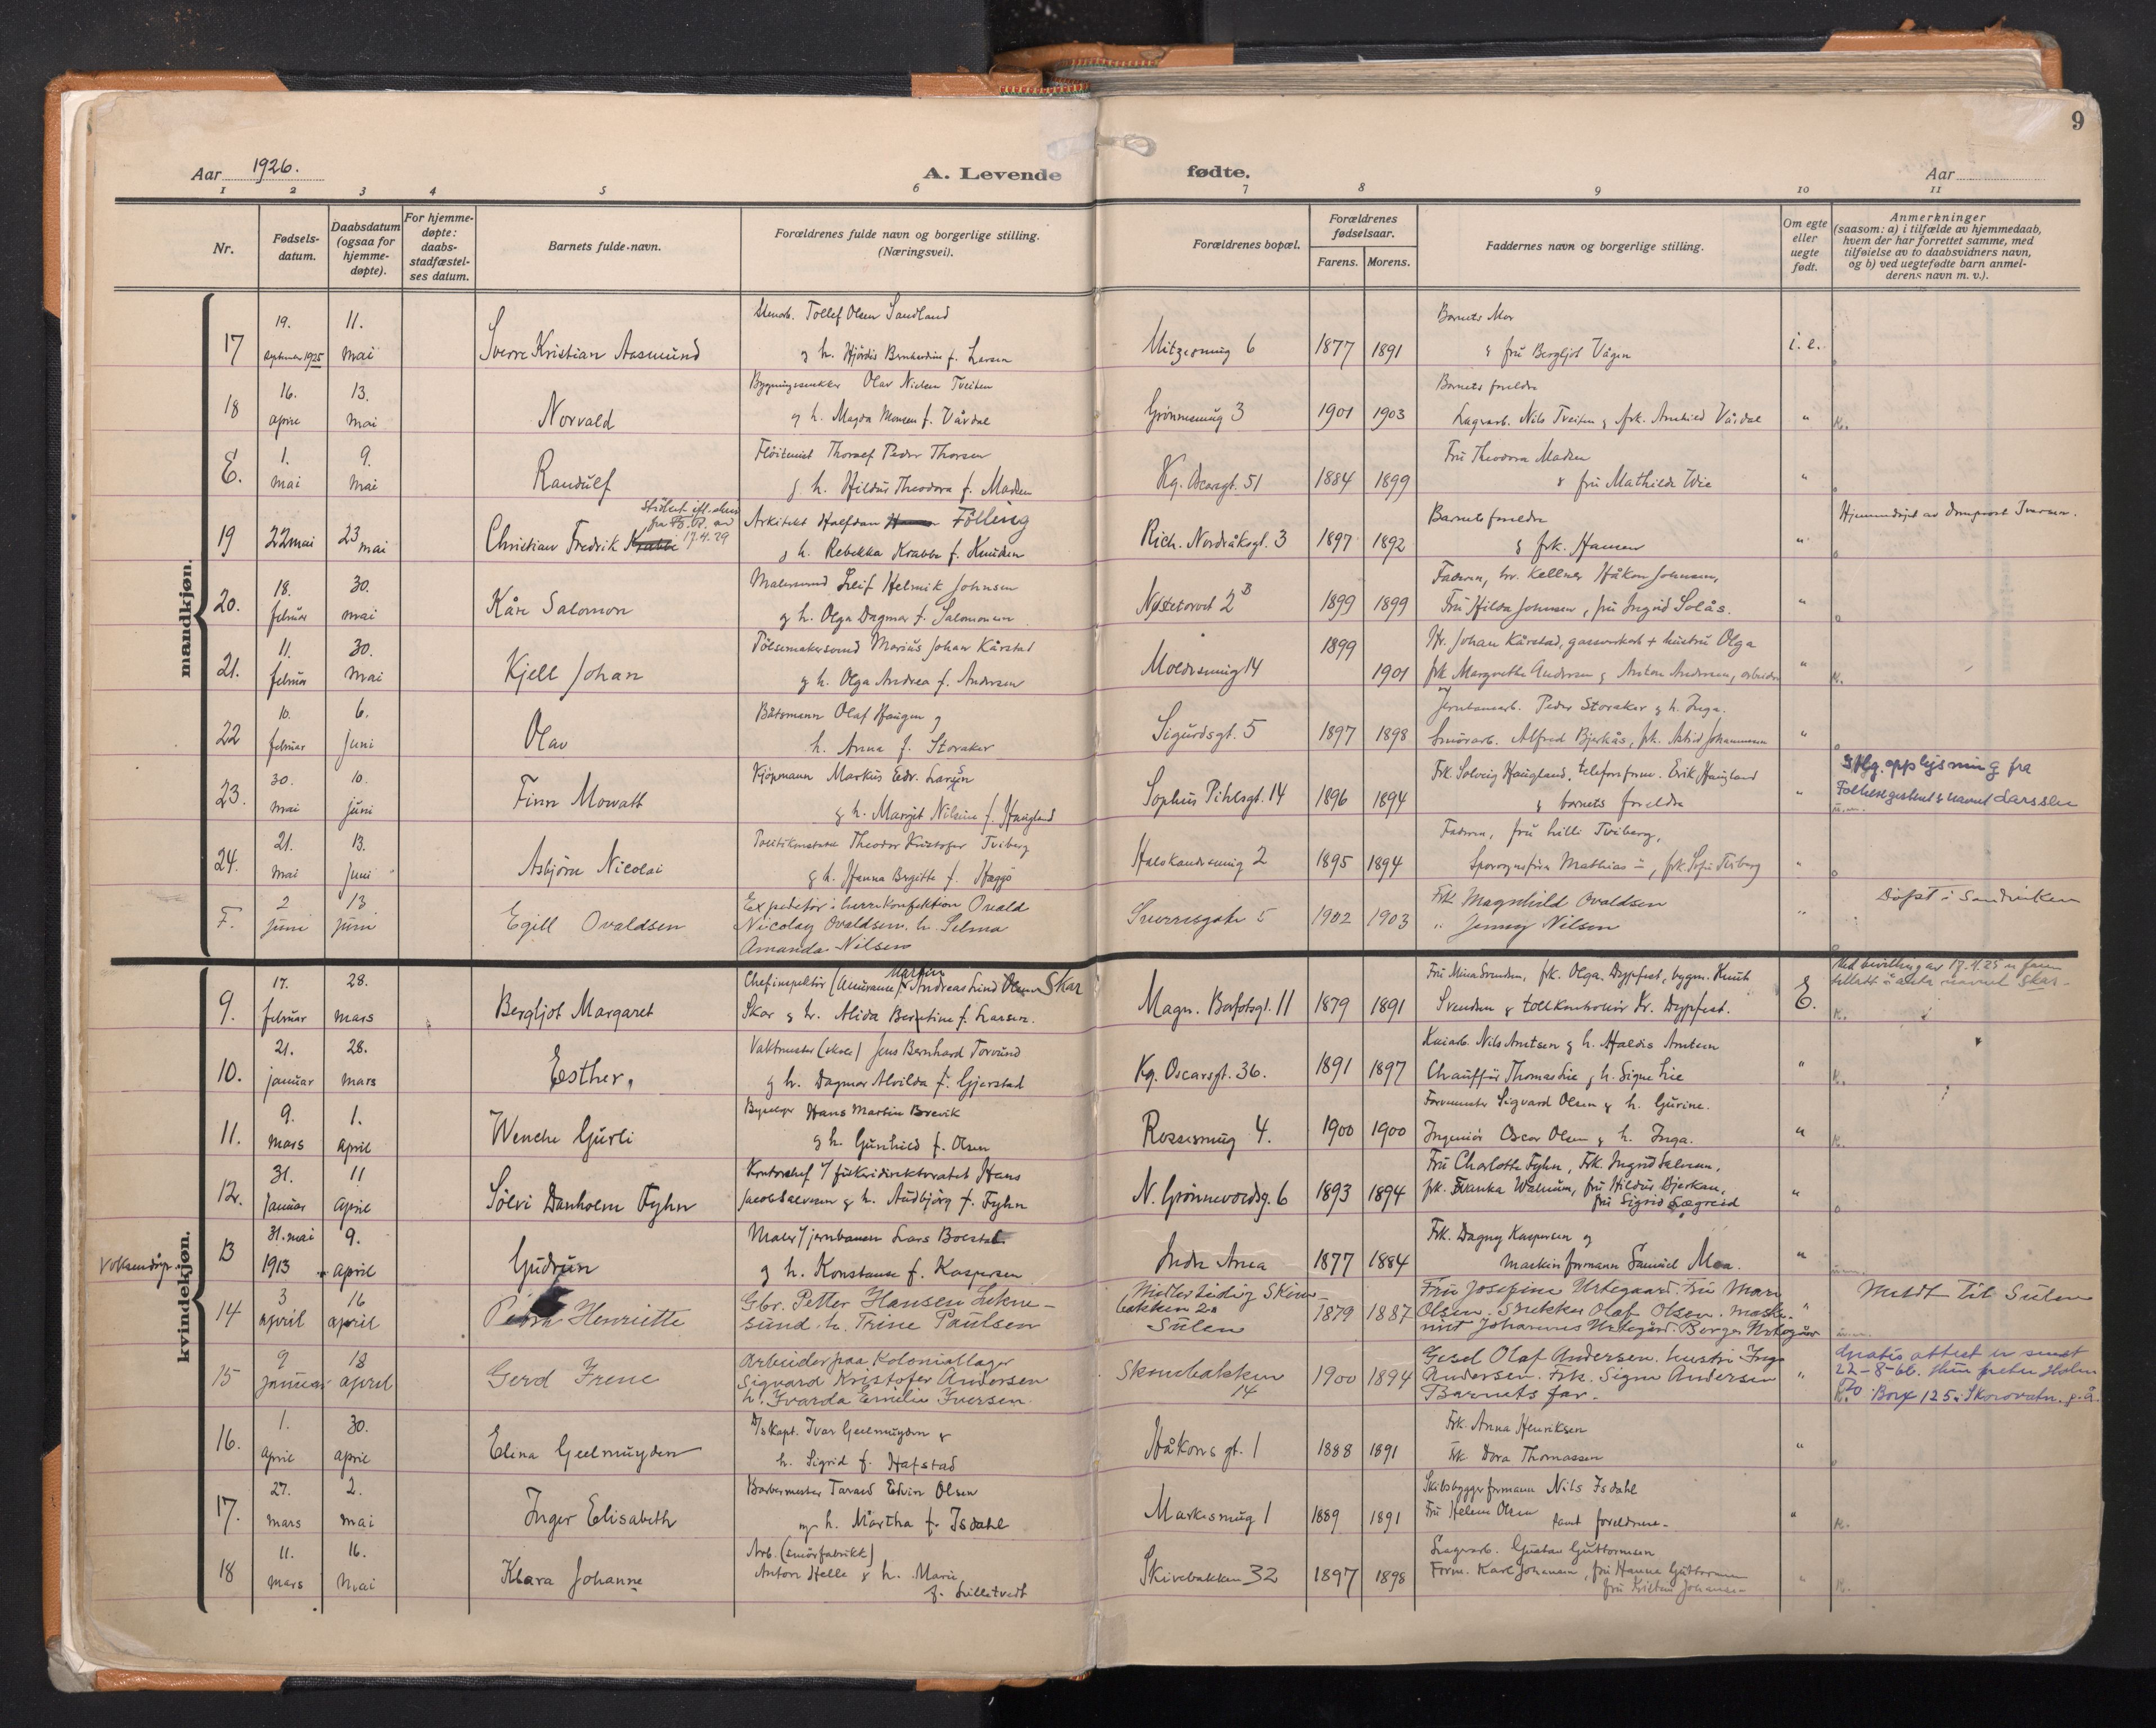 9
Aar 1926.
A. Levende fødte.
Aar
1 2 3 4 5 6 7 8 9 10 11
Nr.
Fødsels-
datum.
Daabsdatum
(ogsaa for
hjemme-
døpte).
For hjemme-
døpte:
daabs-
stadfæstel-
ses datum.
Barnets fulde navn.
Forældrenes fulde navn og borgerlige stilling.
(Næringsvei).
Forældrenes bopæl.
Forældrenes
fødselsaar.
Farens. Morens.
Faddernes navn og borgerlige stilling.
Om egte
eller
uegte
født.
Anmerkninger
(saasom: a) i tilfælde av hjemmedaab,
hvem der har forrettet samme, med
tilføielse av to daabsvidners navn,
og b) ved uegtefødte barn anmel-
derens navn m. v.).
mandkjøn.
17
19.
september 1925
11.
mai
Sverre Kristian Aasmund
Tollef Olsen Sandland
g h. Hjördis Bernhardine f. Larsen
Mitzesmug 6
1877 1891
Barnets Mor
& fru Bergljot Vågen
i. e.
18
16.
april
13.
mai
Norvald
Bygningssnekker Olav Nielsen Tveiten
g h. Magda Monsen f. Vårdal
Grönnesmug 3
1901 1903
Barnets foreldre
Lagerarb. Nils Tveiten & frk. Arnhild Vårdal
"
k.
E.
1.
mai
9.
mai
Randulf
Thoralf Peder Thorsen
g h. Hildur Theodora f. Madsen
Kg. Oscarsgt. 51
1884 1899
Fru Theodora Madsen
& fru Mathilde Wie
"
19
22 mai
23 mai
Christian Fredrik Krabbe
17.4.29
Arkitekt Halfdan Hansen Fölling
g h. Rebekka Krabbe f. Knudsen
Rich. Nordråksgt. 3
1897 1892
Barnets foreldre
& frk. Hansen
"
Hjemmedöpt av domprost Iversen.
20.
18.
februar
30.
mai
Kåre Salomon
Malersvend Leif Helmik Johnsen
g h. Olga Dagmar f. Salomonsen
Nøstetorvet 2 B
1899 1899
Faderen, hr. Kellner Håkon Johnsen,
Fru Hilda Johnsen, fru Ingrid Solås.
"
21.
11.
februar
30.
mai
Kjell Johan
Pölsemakersvend Marius Johan Kårstad
g h. Olga Andrea f. Andersen
Moldesmug 14
1899
1901
Hr. Johan Kårstad, gassverkarb + hustru Olga
frk Margrethe Andersen & Anton Andersen, arbeider
"
k.
22
10.
februar
6.
juni
Olav
Båtsmann Olaf Haugen g
h. Anna f. Storaker
Sigurdsgt. 5
1897 1898
Jernbanearb. Peder Storaker g h. Inga.
Smörarb. Alfred Bjerkås, frk. Astrid Johannessen
"
23.
30.
mai
10.
juni
Finn Mowatt
Kjöpmann Markus Edv. Larsen
g h. Margit Nilsine f. Haugland
Sophus Pihlsgt. 14
1896 1894
Frk. Solveig Haugland, telefonform. Erik Haugland
& barnets foreldre
"
Iflg. opplysning fra
Folkeregisteret & navnet Larssen
24.
21.
mai
13.
juni
Asbjörn Nicolai
Politikonstabel Theodor Kristofer Tviberg
g h. Hanna Birgitte f. Hæggö
1895 1894
Faderen, fru Lilli Tviberg,
Sporvognsförer Mathias –, frk. Sofie Tviberg
"
F.
2
juni
13
juni
Egill Ovaldsen
Expeditör i herrekonfektion Ovald
Nicolay Ovaldsen. h. Selma
Amanda Nilsen
Sverresgate 5
1902 1903
Frk Magnhild Ovaldsen
" Jenny Nilsen
"
Döpt i Sandviken
kvindekjøn.
9.
17.
februar
28.
mars
Bergljot Margaret
Chefinspektör (Assurance) Martin Andreas Lind Olsen Skar
Skar g h. Alida Berntine f. Larsen.
Magn. Barfotsgt. 11
1879 1891
Fru Mina Svendsen, frk. Olga Dyppfest, bygm. Knut
Svendsen & tollkontrollör Kr. Dyppfest.
E.
Ved bevilling av 17.11.25 er faren
tillatt å anta navnet Skar.
k.
10.
21.
januar
28.
mars
Esther.
Vaktmester (skole) Jens Bernhard Torvund
g h. Dagmar Alvilda f. Gjerstad
Kg. Oscarsgt. 36.
1891 1897
Kaiarb. Nils Arntsen g h. Haldis Arntsen
Chauffür Thomas Lie g h. Signe Lie
"
k.
11.
9.
mars
1.
april
Wenche Gurli
Byselger Hans Martin Brevik
g h. Gunhild f. Olsen
Rosesmug 4.
1900 1900
Farvemester Sigvard Olsen g h. Gurine.
Ingeniör Oscar Olsen g h. Inga.
"
k.
12.
31.
Januar
11
april
Sölvi Danholm Fyhn
Kontorchef i fiskeridirektoratet Hans
Jacob Salvesen g h. Audbjörg f. Fyhn
N. Grönnevoldsg. 6
1893 1894
Fru Charlotte Fyhn, Frk. Ingrid Salvesen,
frk. Ivanka Walnum, fru Hildur Bjerkan,
fru Sigrid Sægreid
"
Voksendåp.
13
31. mai
1913
9.
april
Gudrun
Maler i jernbanen Lars Borstad
g h. Konstanse f. Kaspersen
Indre Arna
1877 1884
Frk. Dagny Kaspersen og
Maskinformann Samuel Moa.
"
14
3
april
16
april
Petra Henriette
Gbr. Petter Hansen Lekne-
sund. h. Trine Paulsen
Midlertidig Skive-
bakken 20
Sulen
1879 1887
Fru Josefine Urtegaard. Fru Mari
Olsen. Snekker Olaf Olsen. Maski-
nist Johannes Urtegård. Borger Urtegård
"
Meldt til Sulen
15
9
januar
18
april
Gerd Irene
Arbeider paa Koloniallager
Sigvard Kristofer Andersen
h. Ivarda Emilie Iversen.
Skivebakken
14
1900 1894
Gesel Olaf Andersen. hustru Inga
Andersen. Frk. Signe Andersen
Barnets far.
"
Gratis attest er sendt
22-8-66.
Box 125. Skorovatn.
16.
1.
april
30.
april
Elina Geelmuyden
D/skapt. Ivar Geelmuyden &
h. Sigrid f. Hafstad
Håkonsgt. 1
1888 1891
Frk. Anna Henriksen
Frk Dora Thomassen
"
17.
27.
mars
2.
mai
Inger Elisabeth
Barbermester Tarald Edvin Olsen
og h. Martha f. Isdahl
Markesmug 1
1889 1891
Skibsbyggerformann Nils Isdahl
Fru Helene Olsen samt foreldrene.
"
k.
18
11.
mars
16.
mai
Klara Johanne
Arb. (smörfabrikk)
Anton Helle & h. Marie
f. Lilletvedt
Skivebakken 32
1897 1898
Lagerarb. Gustav Guttormsen
Form. Karl Johansen, fru Hanna Guttormsen
fru Kristine Johansen
"
k.